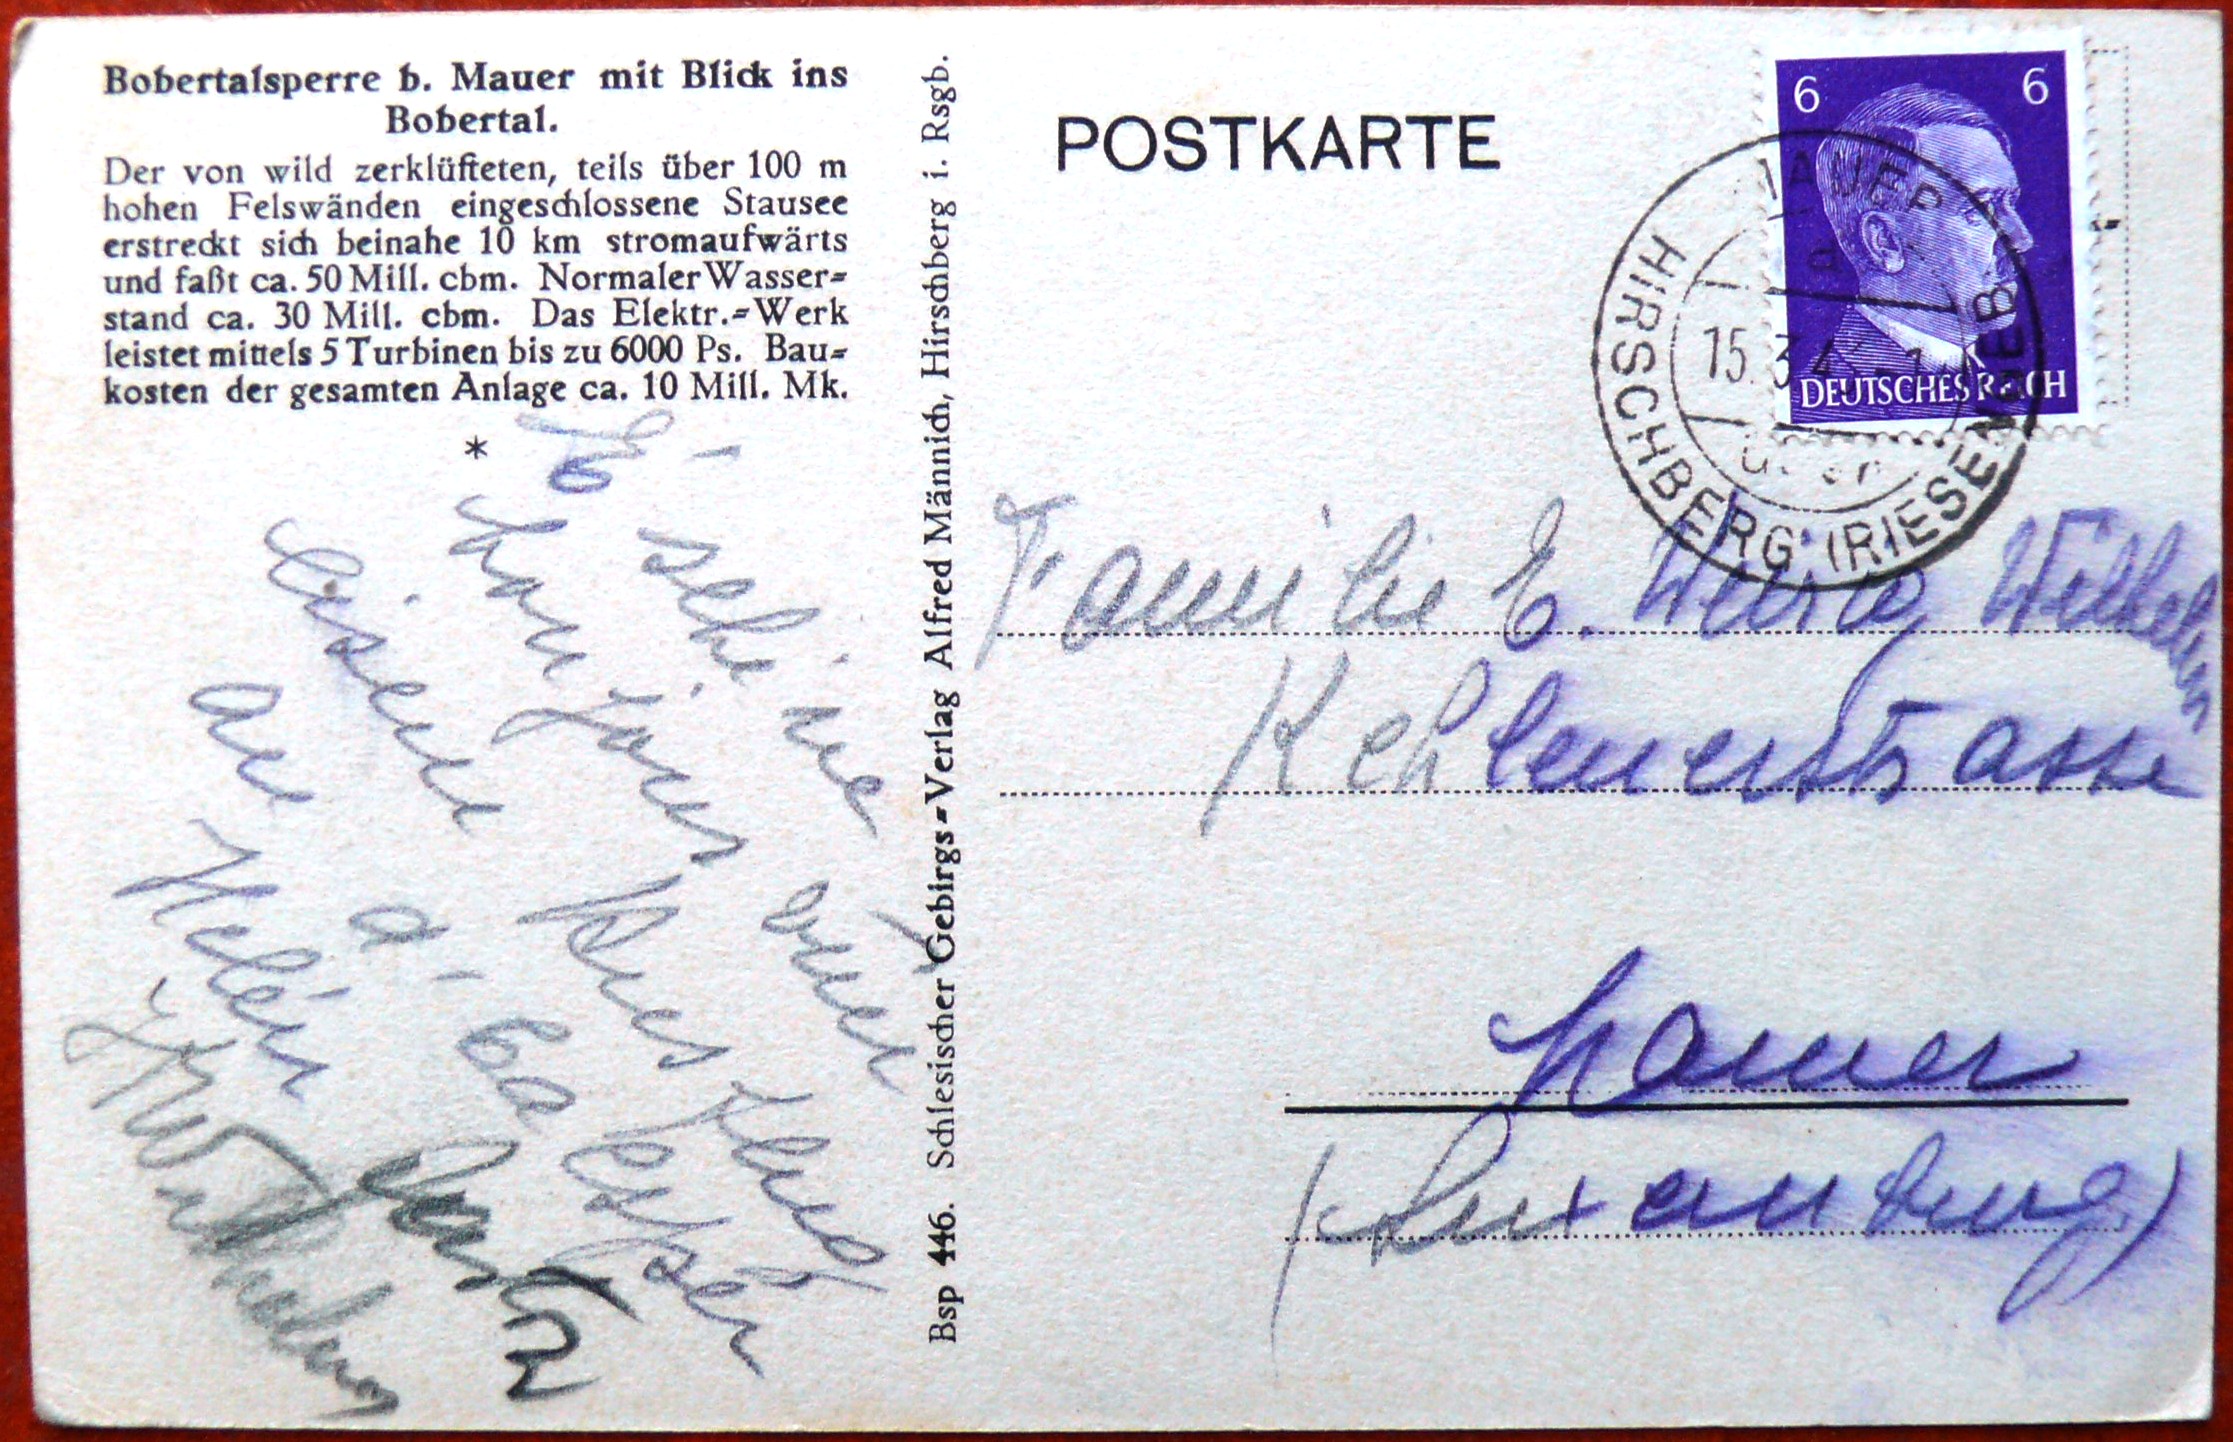 Bobertalsperre b. Mauer mit Blick ins
Bobertal.
Der von wild zerklüfteten, teils über 100 m
hohen Felswänden eingeschlossene Stausee
erstreckt sich beinahe 10 km stromaufwärts
und faßt ca. 50 Mill. cbm. Normaler Wasser=
stand ca. 30 Mill. cbm. Das Elektr.=Werk
leistet mittels 5 Turbinen bis zu 6000 Ps. Bau=
kosten der gesamten Anlage ca. 10 Mill. Mk.
*
E schéine
Bonjour vun
eisem Ausflug
an d'
Bsp 446. Schlesischer Gebirgs=Verlag Alfred Männich, Hirschberg i. Rsgb.
POSTKARTE
6 6
DEUTSCHES REICH
MAUER
a
15.3.4
über
HIRSCHBERG (RIESENGEB
Familie E. Wilhelm
Kehlenerstrasse
Mamer
(Luxemburg)